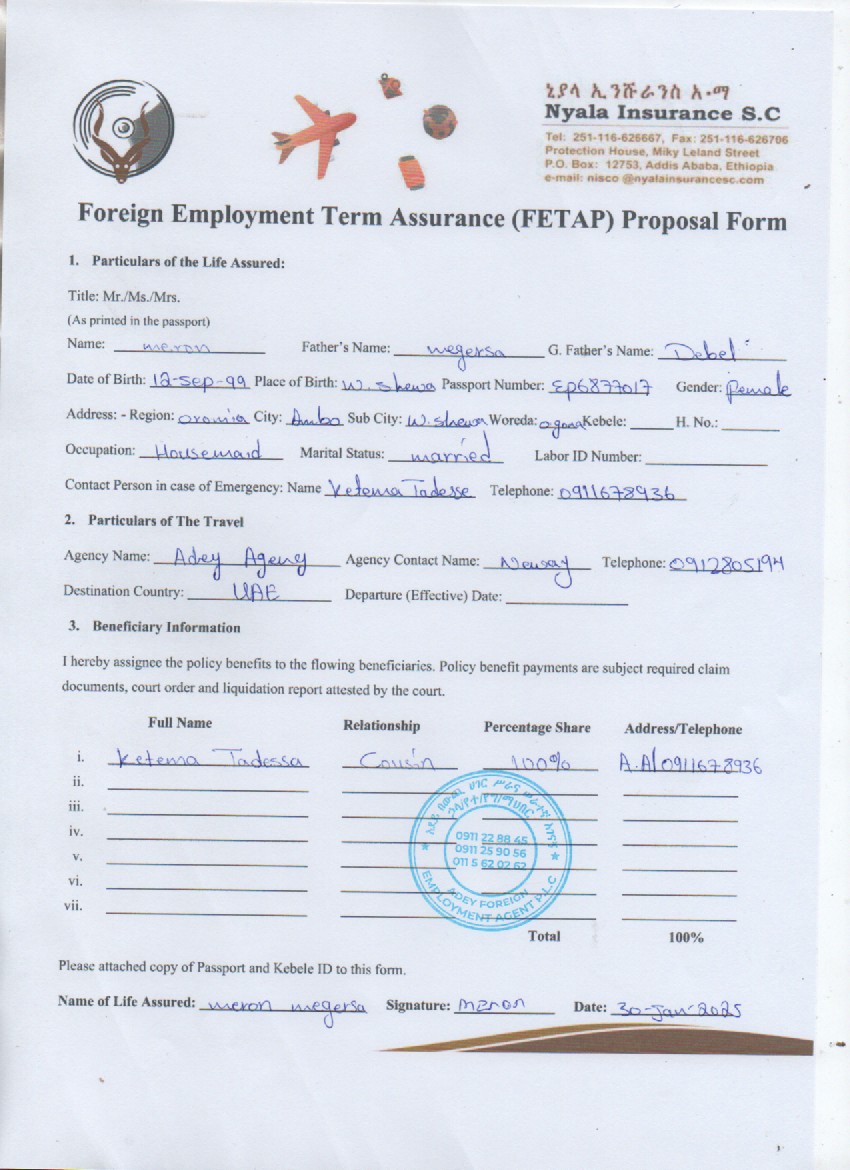 ኒያላ ኢንሹራንስ አ.ማ
Nyala Insurance S.C
Tel: 251-116-626667, Fax: 251-116-626706
Protection House, Miky Leland Street
P.O. Box: 12753, Addis Ababa, Ethiopia
e-mail: nisco @nyalainsurancesc.com
Foreign Employment Term Assurance (FETAP) Proposal Form
1. Particulars of the Life Assured:
Title: Mr./Ms./Mrs.
(As printed in the passport)
Name: meron Father's Name: megersa G. Father's Name: Debel
Date of Birth: 12-Sep-99 Place of Birth: W. Shewa Passport Number: EP6877017 Gender: Female
Address: - Region: oromia City: Ambo Sub City: W. Shewa Woreda: Kebele: H. No.:
Occupation: Housemaid Marital Status: married Labor ID Number:
Contact Person in case of Emergency: Name Ketema Tadesse Telephone: 0911678936
2. Particulars of The Travel
Agency Name: Adey Agency Agency Contact Name: Telephone: 0912805194
Destination Country: UAE Departure (Effective) Date:
3. Beneficiary Information
I hereby assignee the policy benefits to the flowing beneficiaries. Policy benefit payments are subject required claim
documents, court order and liquidation report attested by the court.
Full Name Relationship Percentage Share Address/Telephone
i. Ketema Tadessa Cousin 100% A.A/0911678936
ii.
iii.
iv.
v.
vi.
vii.
0911 22 88 45
0911 25 90 56
011 5 62 02 62
ADEY FOREIGN
EMPLOYMENT AGENT P.L.C
Total 100%
Please attached copy of Passport and Kebele ID to this form.
Name of Life Assured: meron megersa Signature: meron Date: 30-Jan-2025